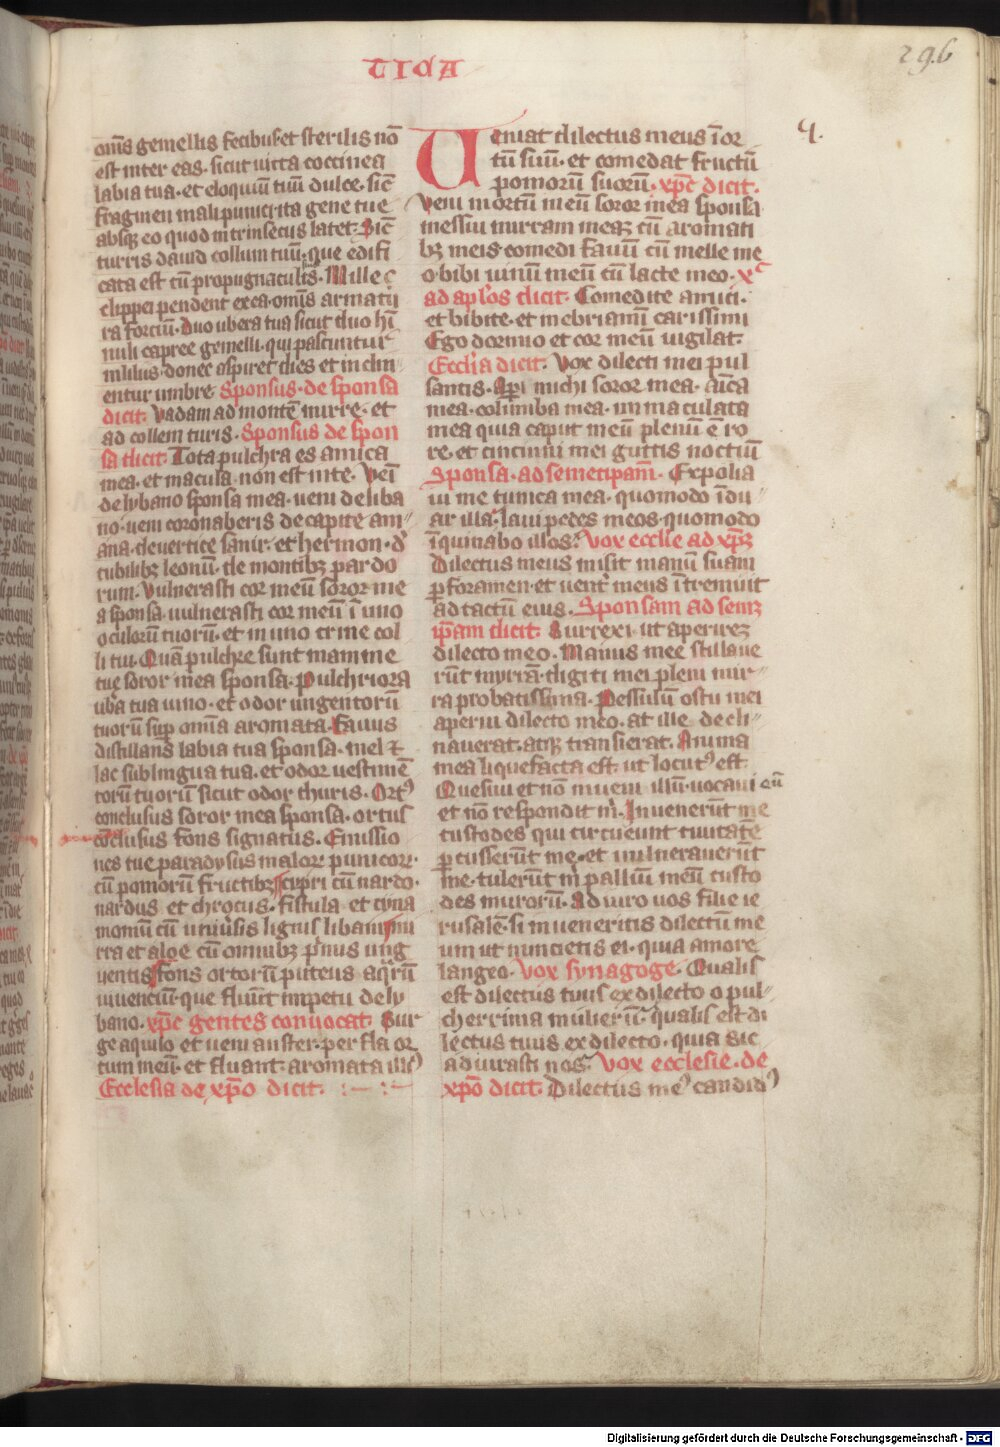 TICA
296
om̄s gemellis fetibus et sterilis nō
est inter eas. sicut uitta coccinea
labia tua. et eloquiū tuū dulce. sic̄
fragmen mali punici ita gene tue
absq; eo quod intrinsecus latet. Sic̄
turris dauid collum tuū. que edifi
cata est cū propugnaculis. Mille
clippei pendent ex ea. om̄is armatu
ra fortiū. Duo ubera tua sicut duo hī
nuli capree gemelli. qui pascuntur
inlilius. donec aspiret dies et inclin
entur umbre. Sponsus. de sponsa
dicit. Vadam ad montē mirre. et
ad collem turis. Sponsus de spon
sa dicit. Tota pulchra es amica
mea. et macula non est in te. Veī
de lybano sponsa mea. ueni de liba
no. ueni coronaberis de capite am〃
ana. de uertice sanir. et hermon. d̄
cubilib; leonū. de montib; pardo
rum. Vulnerasti cor meū soror me
a sponsa. uulnerasti cor meū ī uno
oculorū tuorū. et in uno crine col
li tui. Quā pulchre sunt mamme
tue soror mea sponsa. Pulchriora
ub̄a tua uino. et odor ungentorū
tuorū sup̄ omīa aromata. Fauus
distillans labia tua sponsa. mel ⁊
lac sub lingua tua. et odor uestimē
torū tuorū sicut odor thuris. Ort᾽
conclusus soror mea sponsa. ortus
cōclusus fons signatus. Emissio
nes tue paradysus malor̄ punicor̄.
cū pomorū fructib; cipri cū nardo.
nardus et chrocus. fistula et cyna
momū cū uniuersis lignis libani mi
rra et aloe cū omnib; p̄mus ung
uentis fons ortorū puteus aq̄rū
uiuenciū. que fluūt impetu de ly
bano. xp̄c gentes conuocat. Sur
ge aquilo et ueni auster. perfla or
tum meū. et fluant aromata illi᾽
Ecclesia de xp̄o dicit. :~ :~
Veniat dilectus meus ī or
tū suū. et comedat fructū
pomorū suorū. xp̄c dicit.
Veni in ortū meū soror mea sponsa
messiui mirram meaʒ cū aromati
b; meis comedi fauū cū melle me
o. bibi uinū meū cū lacte meo. x᾽
ad ap̄los dicit. Comedite amici.
et bibite. et inebriamī carissimi
Ego dormio et cor meū uigilat.
Ecclīa dicit. Vox dilecti mei pul
santis. Aperi michi soror mea. amīca
mea. columba mea. immaculata
mea quia caput meū plenū ē ro
re. et cincinni mei guttis noctiū
Sponsa. ad semetipam̄. Expolia
ui me tunica mea. quomodo īdu〃
ar illa. laui pedes meos. quomodo
īquinabo illos? vox ecclie ad xp̄ʒ
Dilectus meus misit manū suam
p̄ foramen. et uent̄ meus ītremuit
ad tactū eius. Sponsam ad semʒ
ip̄am dicit. Surrexi. ut aperireʒ
dilecto meo. Manus mee stillaue
rūt myrrā. digiti mei pleni mir〃
ra probatissima. Pessulū ostii mei
aperui dilecto meo. at ille decli〃
nauerat. atq; transierat. Anima
mea liquefacta est. ut locut᾽ est.
Quesiui et nō inueni illū. uocaui eū
et nō respondit m̄. Inuenerūt me
custodes qui circueunt ciuitatē
p̄cusserūt me. et uulnerauerūt
me. tulerūt m̄ palliū meū custo
des murorū. Ad iuro uos filie ie
rusalē. si inueneritis dilectū me
um ut nuncietis ei. quia amore
langeo. Vox synagoge. Qualis
est dilectus tuus ex dilecto o pul〃
cherrima mulierū. qualis est di
lectus tuus ex dilecto. quia sic
adiurasti nos. Vox ecclesie. de
xp̄o dicit. Dilectus me᾽ candid᾽
Digitalisierung gefördert durch die Deutsche Forschungsgemeinschaft - DFG